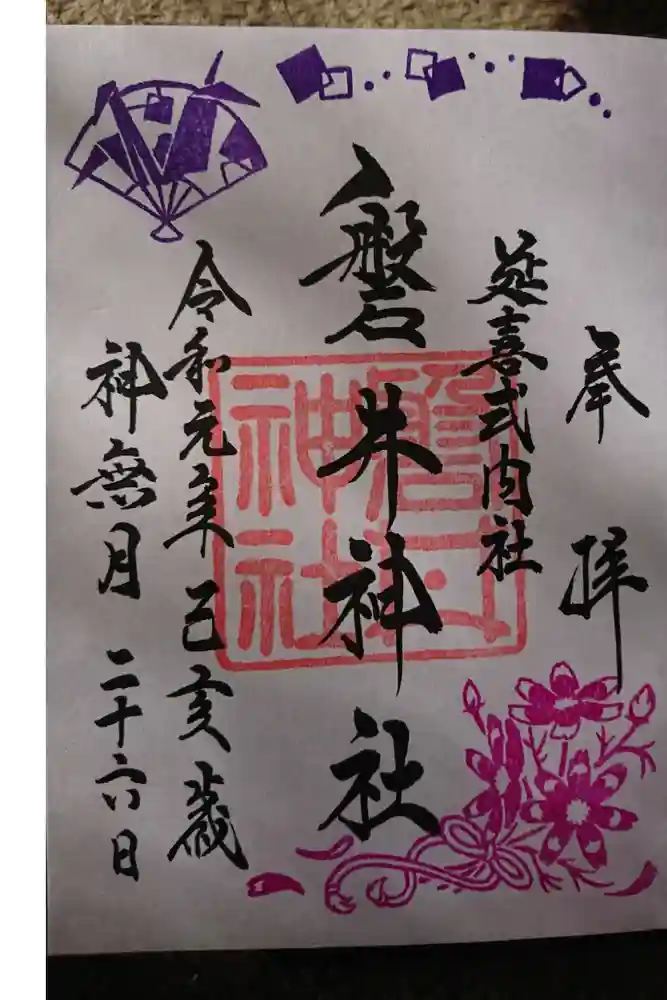 奉拝
延喜式内社
磐井神社
令和元年己亥歳
神無月二十六日
磐井
神社